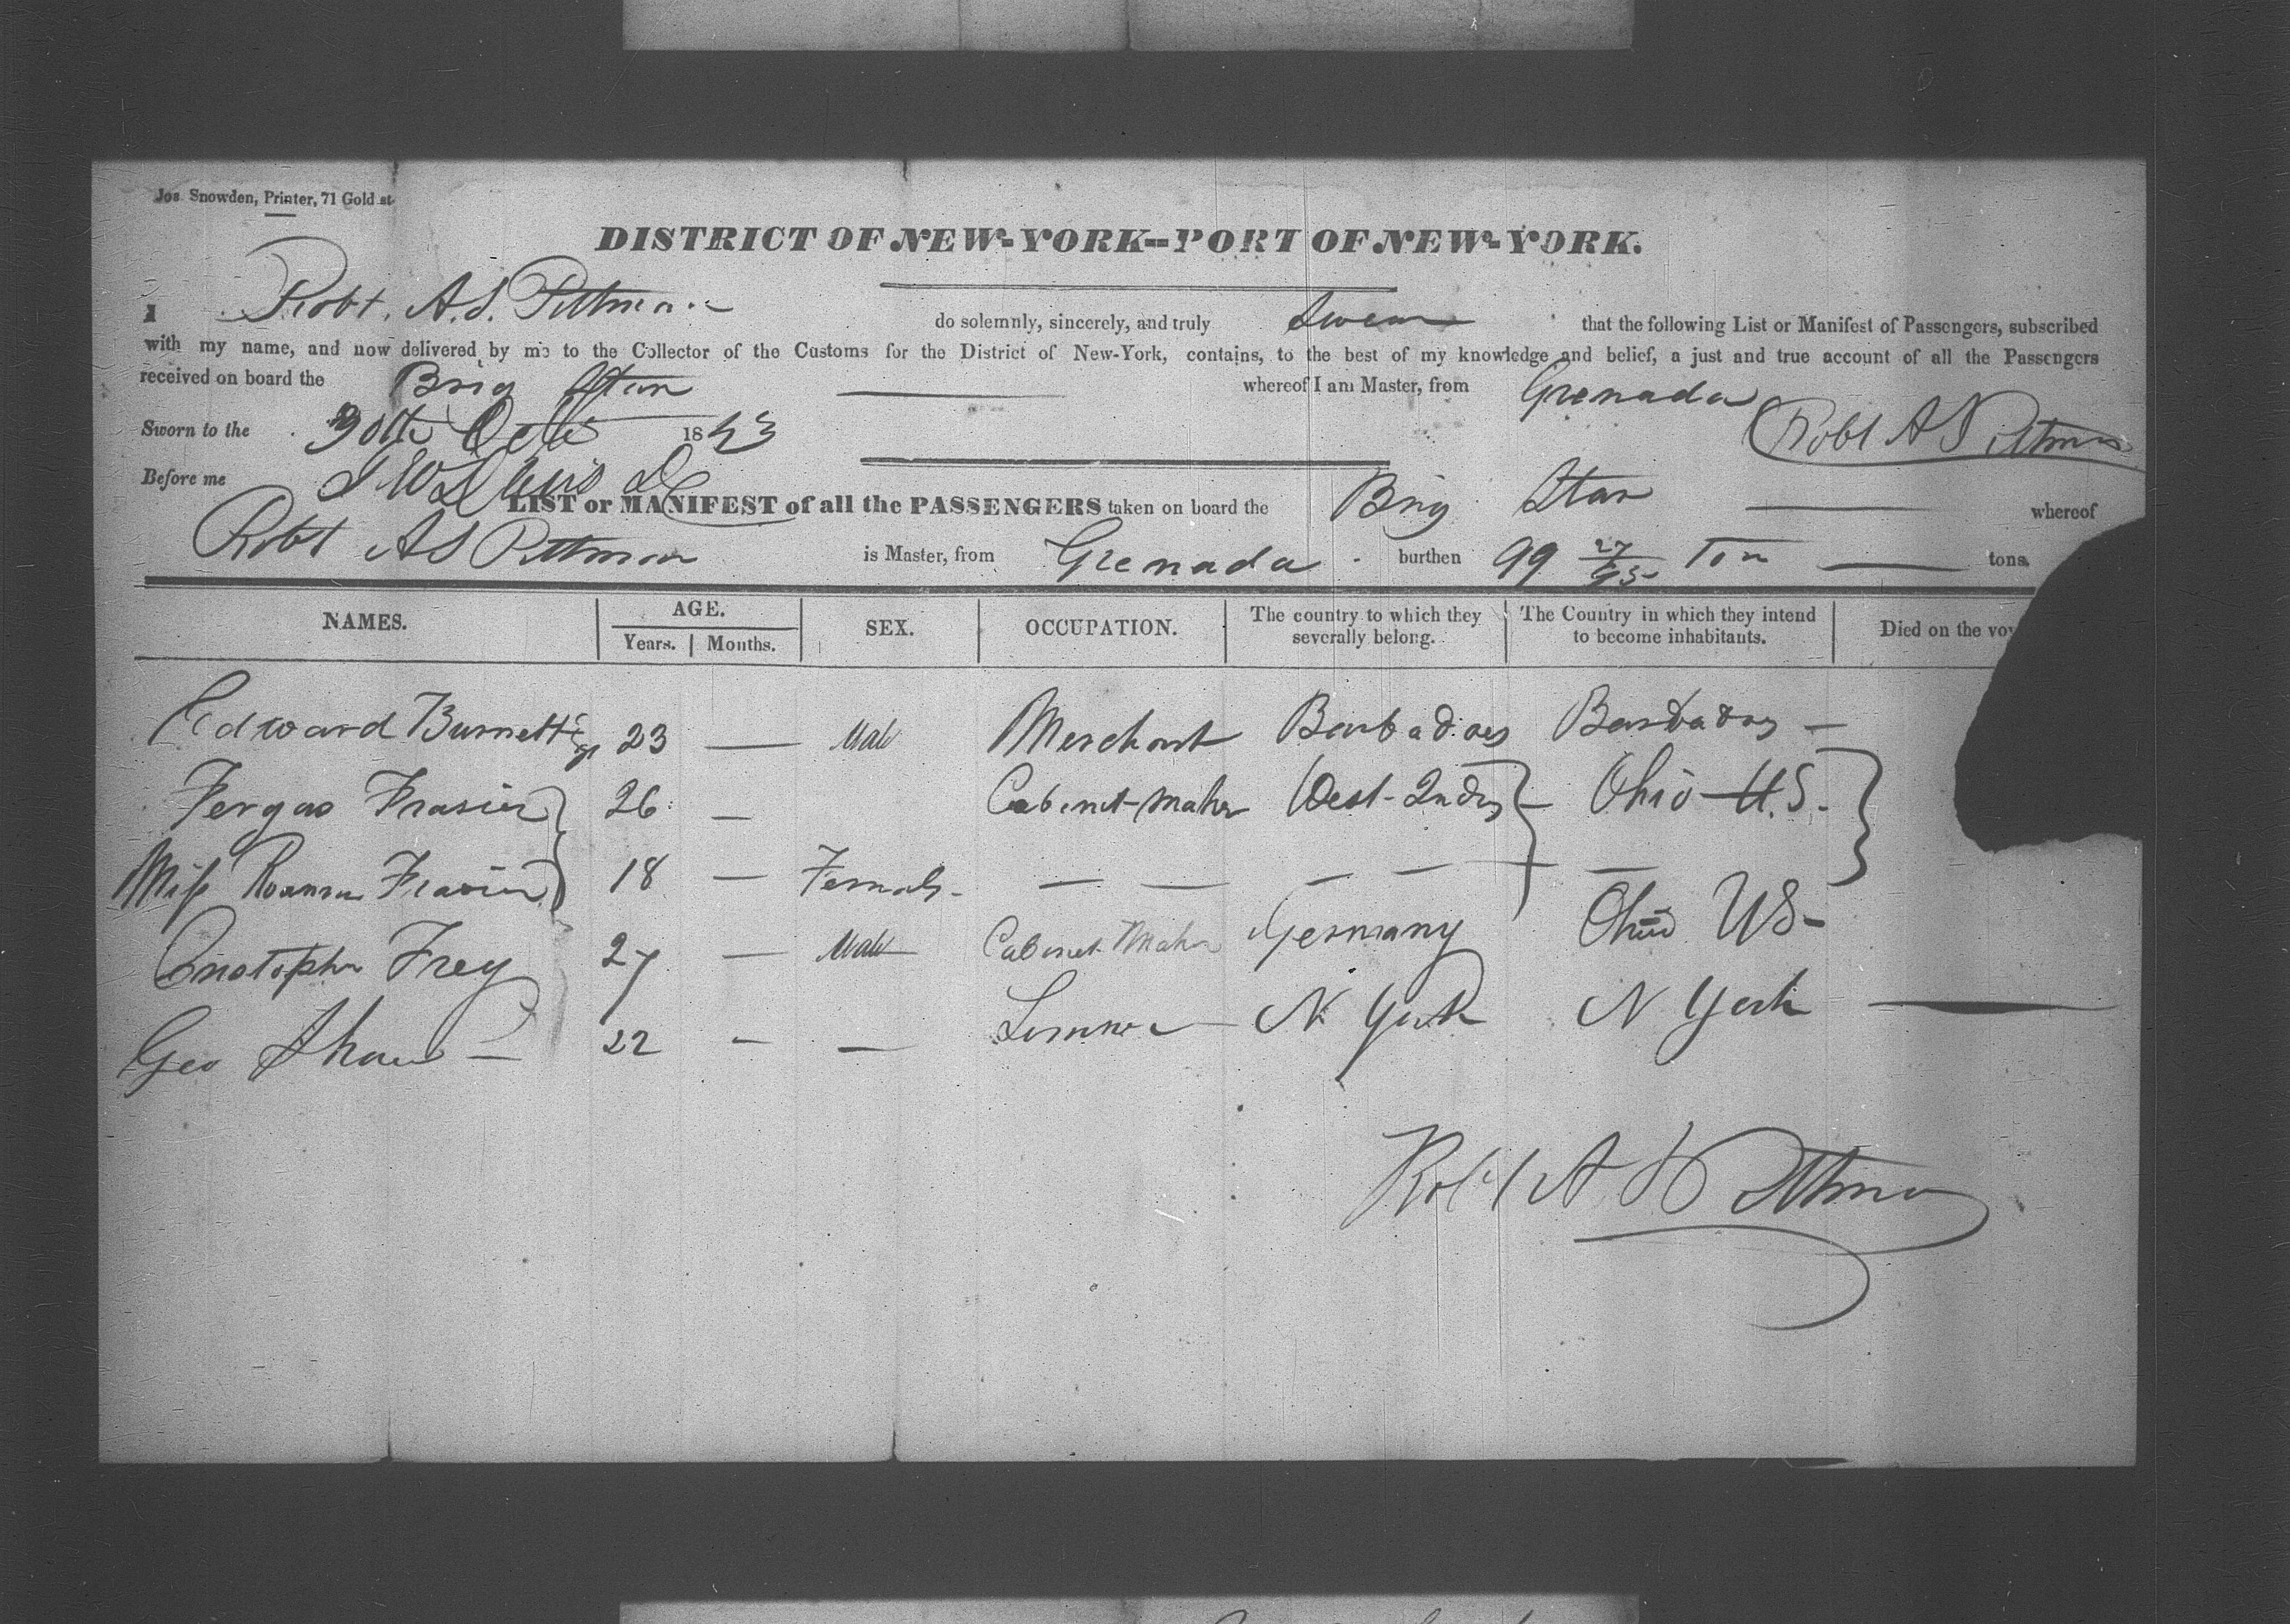 Jos. Snowden, Printer, 71 Gold st.
DISTRICT OF NEW-YORK--PORT OF NEW-YORK.
I Robt. A.S. Pittman do solemnly, sincerely, and truly Swear that the following List or Manifest of Passengers, subscribed
with my name, and now delivered by me to the Collector of the Customs for the District of New-York, contains, to the best of my knowledge and belief, a just and true account of all the Passengers
received on board the Brig Star whereof I am Master, from Grenada
Sworn to the 30th 1843 Robt A S Pittman
Before me
LIST or MANIFEST of all the PASSENGERS taken on board the Brig Star whereof
Robt A S Pittman is Master, from Grenada burthen 99 27/95 Ton tons.
NAMES. AGE. SEX. OCCUPATION. The country to which they severally belong. The Country in which they intend to become inhabitants. Died on the voy
Years. Months.
Edward Burnett 23 — Male Merchant Barbadoes Barbadoes —
Fergus Frasier 26 — Cabinet-maker West-Indies Ohio U.S.
Miss Frasier 18 — Female — — — — — —
Frey 27 — Male Cabinet Maker Germany Ohio US-
Geo Shaw — 22 - — N York N York —
Robt A S Pittman